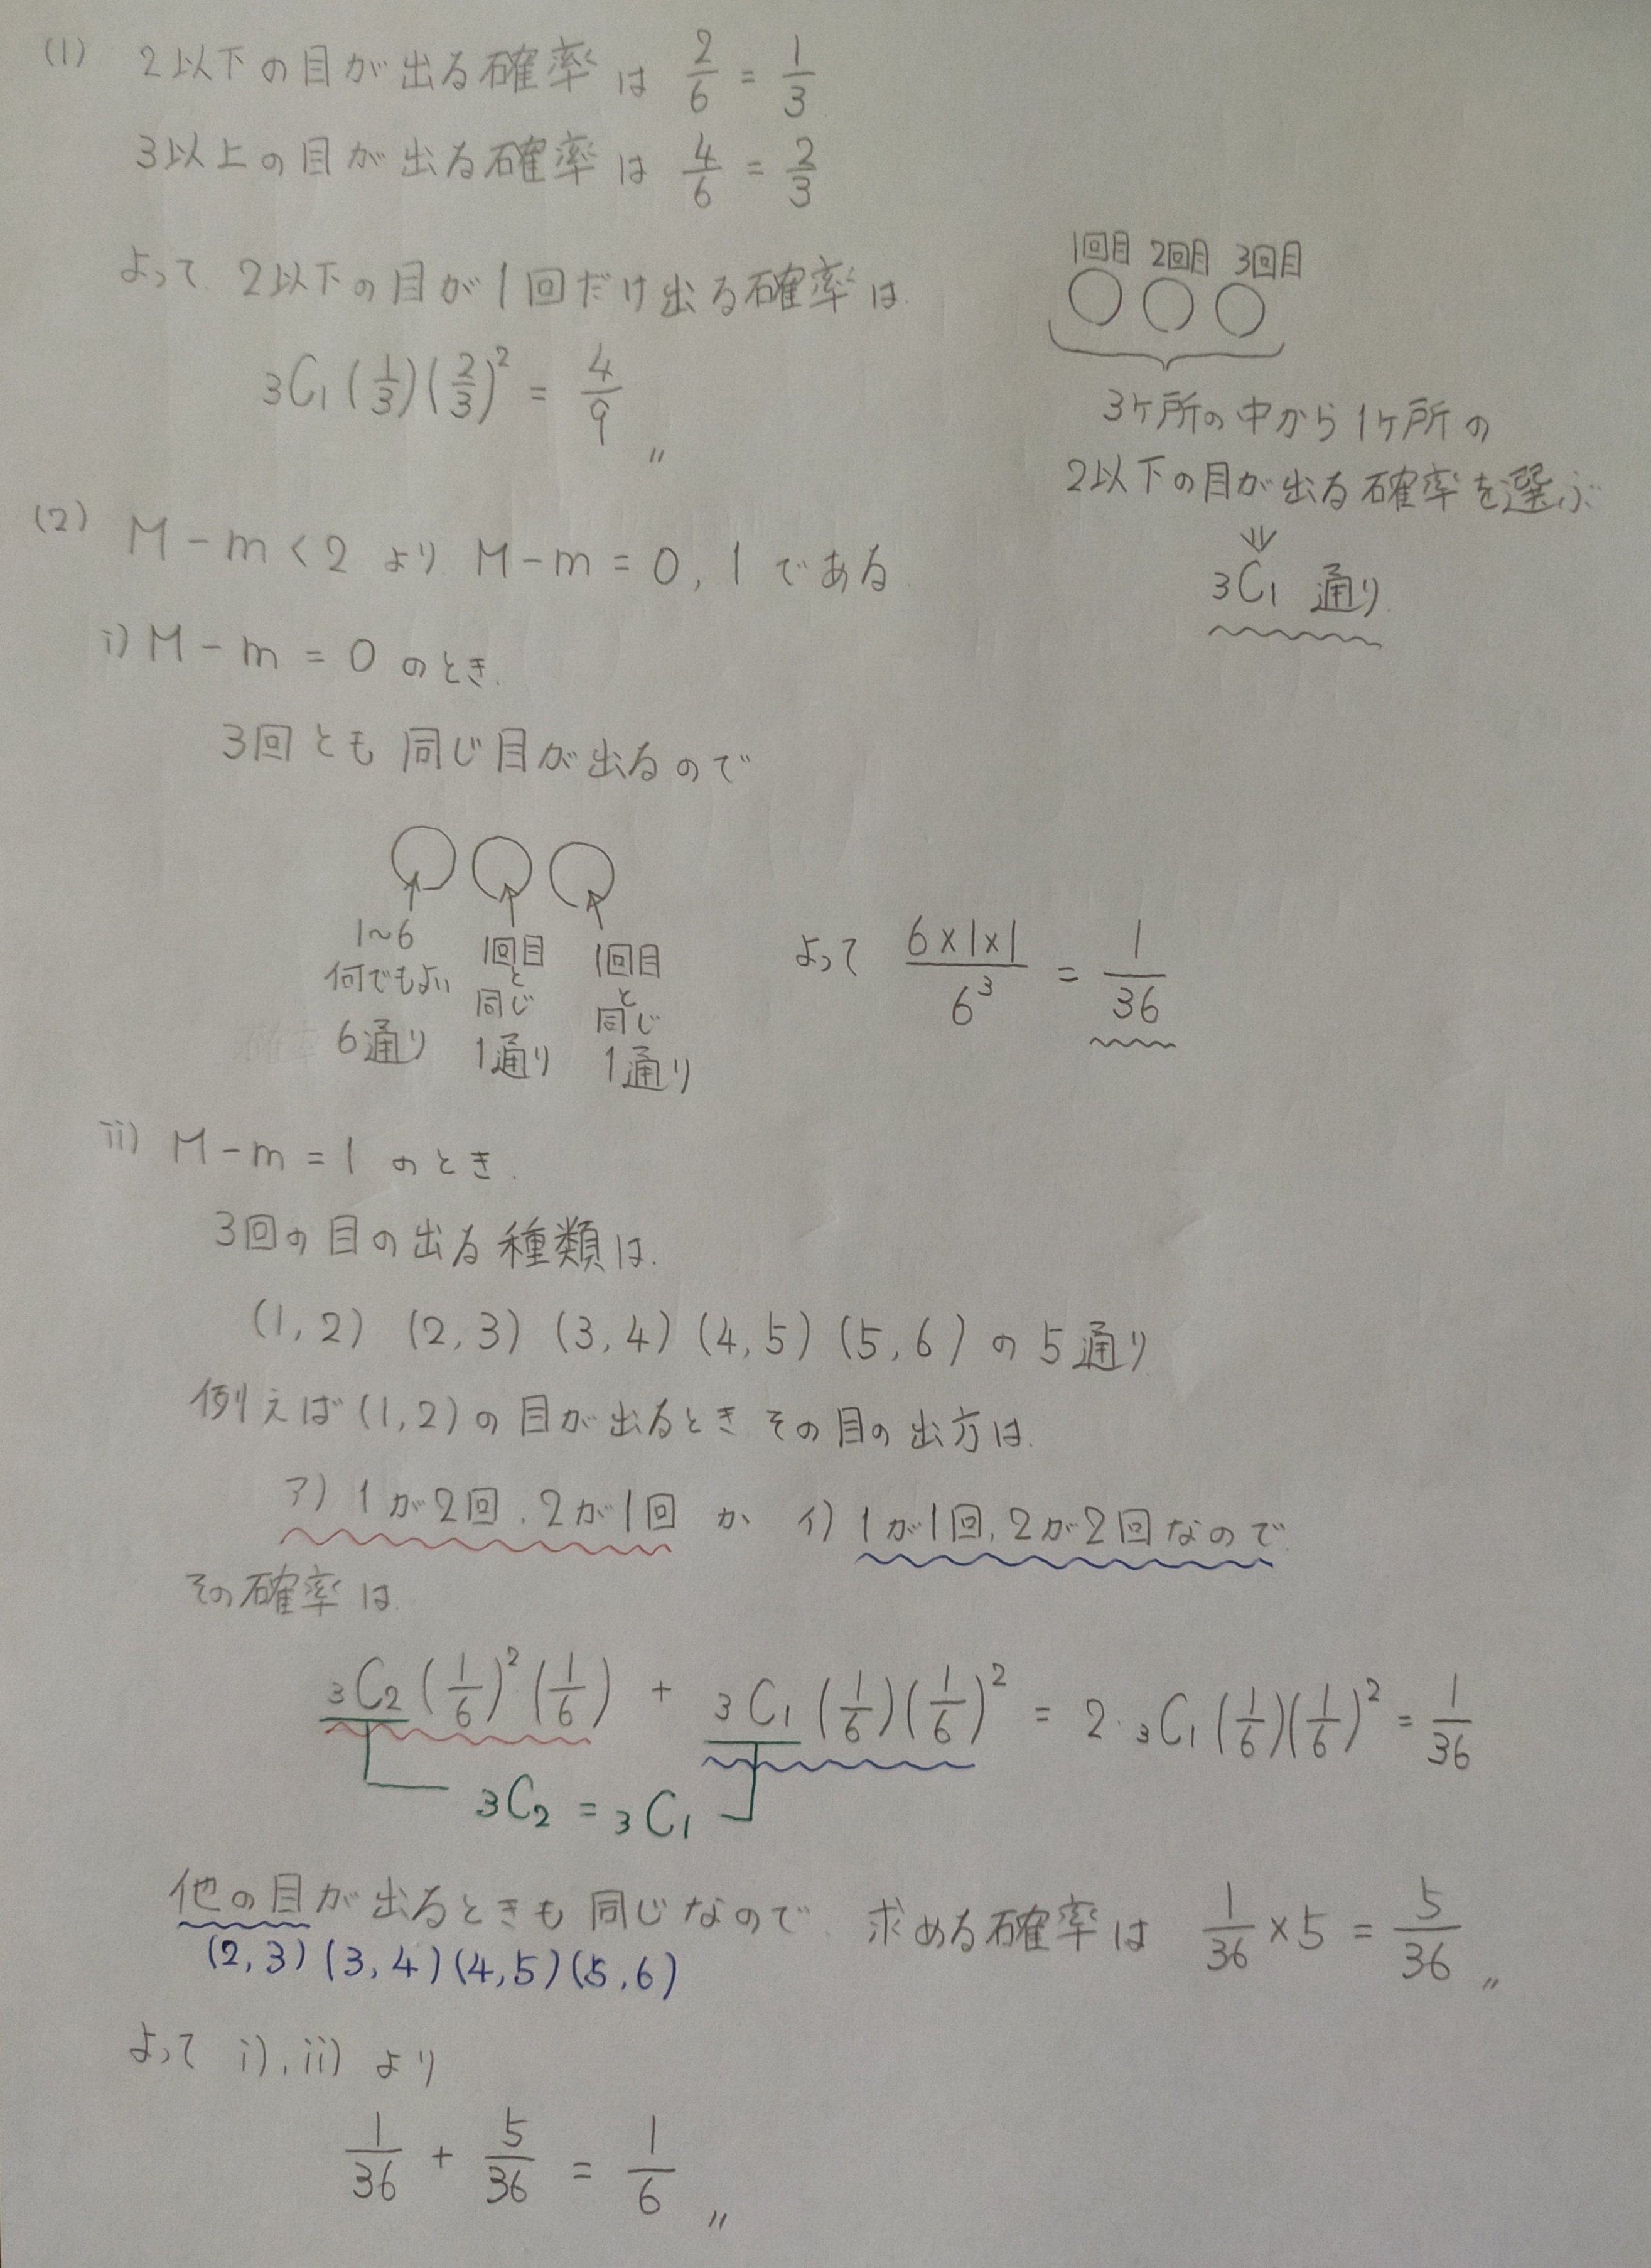 (1) 2以下の目が出る確率は 2/6 = 1/3
3以上の目が出る確率は 4/6 = 2/3
よって 2以下の目が1回だけ出る確率は.
3C1 (1/3)(2/3)^2 = 4/9 〃
1回目 2回目 3回目
3ヶ所の中から1ヶ所の
2以下の目が出る確率を選ぶ
3C1 通り.
(2) M-m<2 より M-m=0,1である
i) M-m=0 のとき.
3回とも同じ目が出るので
1~6 何でもよい 6通り
1回目と同じ 1通り
1回目と同じ 1通り
よって 6×1×1/6^3 = 1/36
ii) M-m=1 のとき.
3回の目の出る種類は.
(1,2) (2,3) (3,4) (4,5) (5,6) の5通り
例えば(1,2)の目が出るとき その目の出方は.
ア) 1が2回.2が1回 か イ) 1が1回.2が2回なので
その確率は.
3C2 (1/6)^2 (1/6) + 3C1 (1/6)(1/6)^2 = 2・3C1 (1/6)(1/6)^2 = 1/36
3C2 = 3C1
他の目が出るときも同じなので. 求める確率は 1/36 ×5 = 5/36 〃
(2,3) (3,4) (4,5) (5,6)
よって i),ii) より
1/36 + 5/36 = 1/6 〃